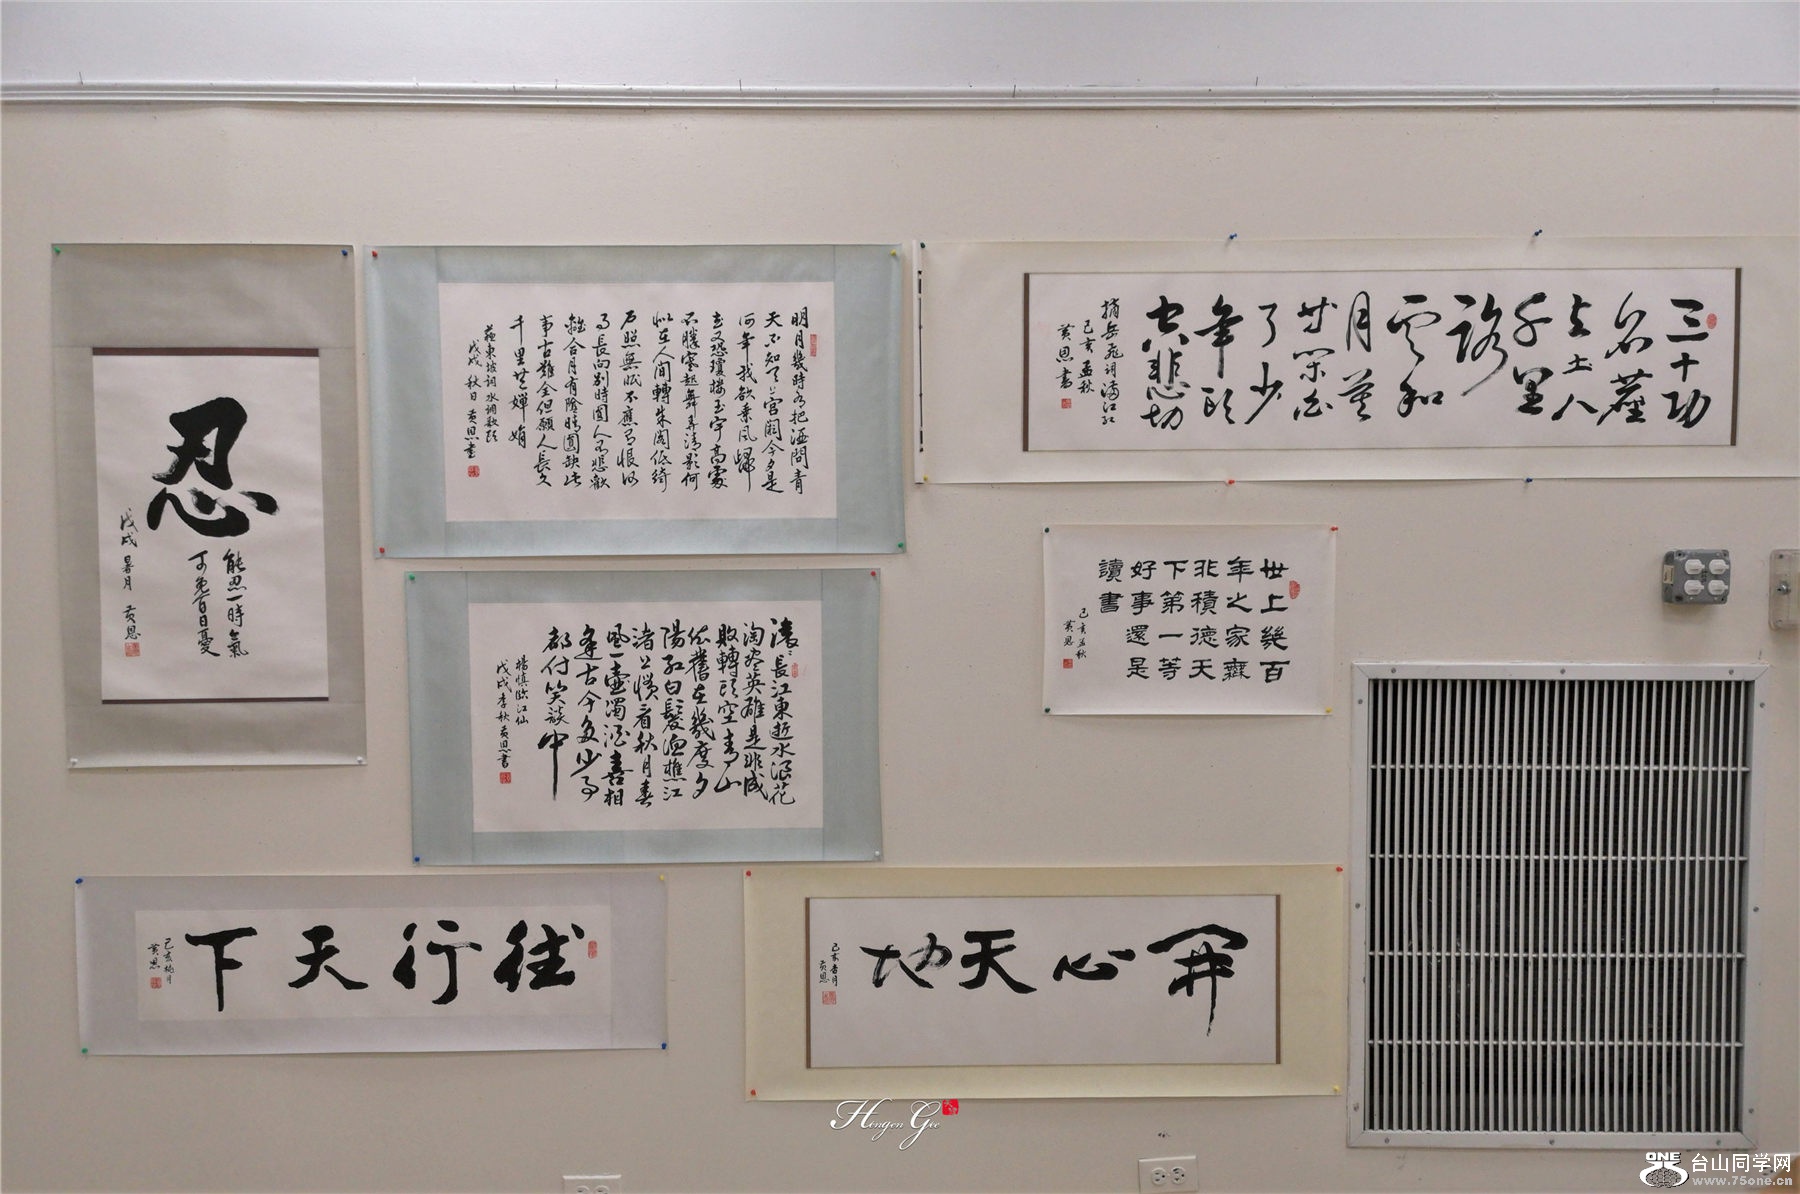 忍
能忍一時氣
可免百日憂
戊戌 暑月 黃恩
明月幾時有把酒問青
天不知天上宮闕今夕是
何年我欲乘風歸
去又恐瓊樓玉宇高處
不勝寒起舞弄清影何
似在人間轉朱閣低綺
戶照無眠不應有恨何
事長向別時圓人有悲歡
離合月有陰晴圓缺此
事古難全但願人長久
千里共嬋娟
蘇東坡詞水調歌頭
戊戌秋日黃恩書
三十功
名塵
與土八
千里
路
雲和
月莫
等閑白
了少
年頭
空悲切
摘岳飛詞滿江紅
己亥孟秋
黃恩書
滾滾長江東逝水浪花
淘盡英雄是非成
敗轉頭空青山
依舊在幾度夕
陽紅白髮漁樵江
渚上慣看秋月春
風一壺濁酒喜相
逢古今多少事
都付笑談中
楊慎臨江仙
戊戌季秋黃恩書
世上幾百
年之家無
非積德天
下第一等
好事還是
讀書
己亥孟秋
黃恩
德行天下
己亥桃月
黃恩
開心天地
己亥春月
黃恩
Hengen Gee
ONE 台山同学网
www.75one.cn